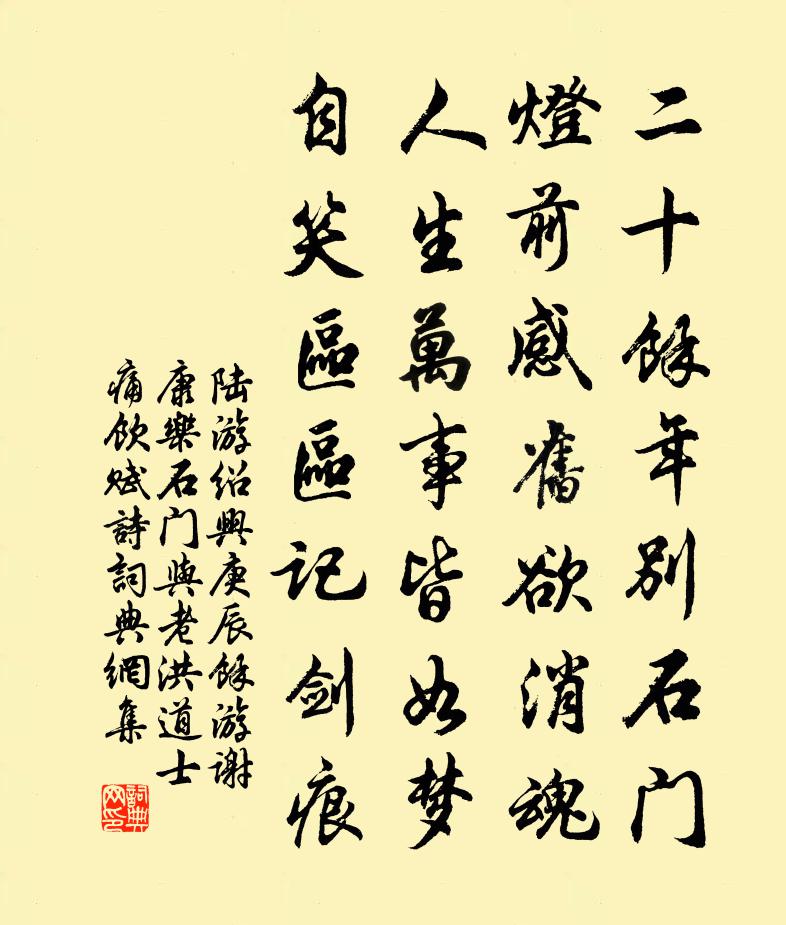 二十餘年別石门
燈前感舊欲消魂
人生萬事皆如梦
自笑區區记剑痕
陆游绍興庚辰餘游谢
康樂石门與老洪道士
痛饮赋詩詞典網集
詞典网印